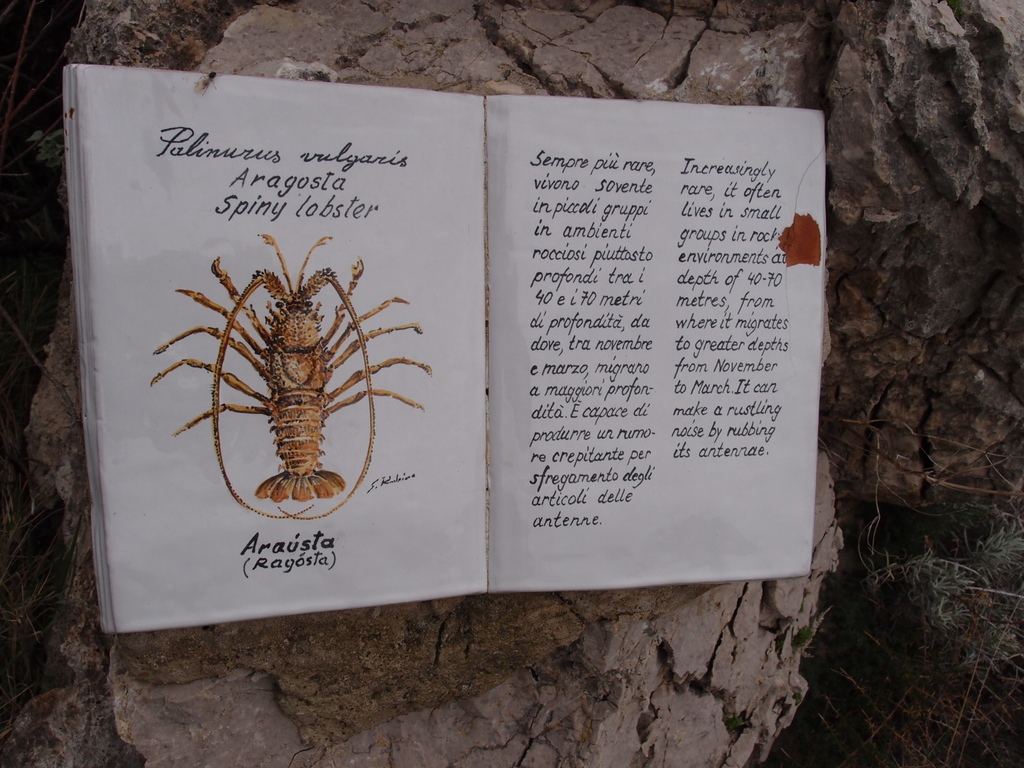 Palinurus vulgaris
Aragosta
Spiny lobster
S. Rubino
Araústa
(Ragósta)
Sempre più rare,
vivono sovente
in piccoli gruppi
in ambienti
rocciosi piuttosto
profondi tra i
40 e i 70 metri
di profondità, da
dove, tra novembre
e marzo, migrano
a maggiori profon-
dità. È capace di
produrre un rumo-
re crepitante per
sfregamento degli
articoli delle
antenne.
Increasingly
rare, it often
lives in small
groups in rock
environments at
depth of 40-70
metres, from
where it migrates
to greater depths
from November
to March. It can
make a rustling
noise by rubbing
its antennae.